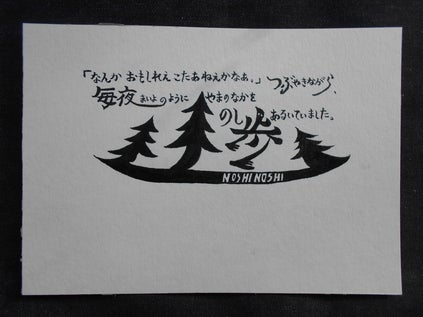 「なんか おもしれえ こたあねえかなあ。」 つぶやきながら、
毎夜まいよのように やまのなかを
のし歩あるいていました。
NOSHINOSHI